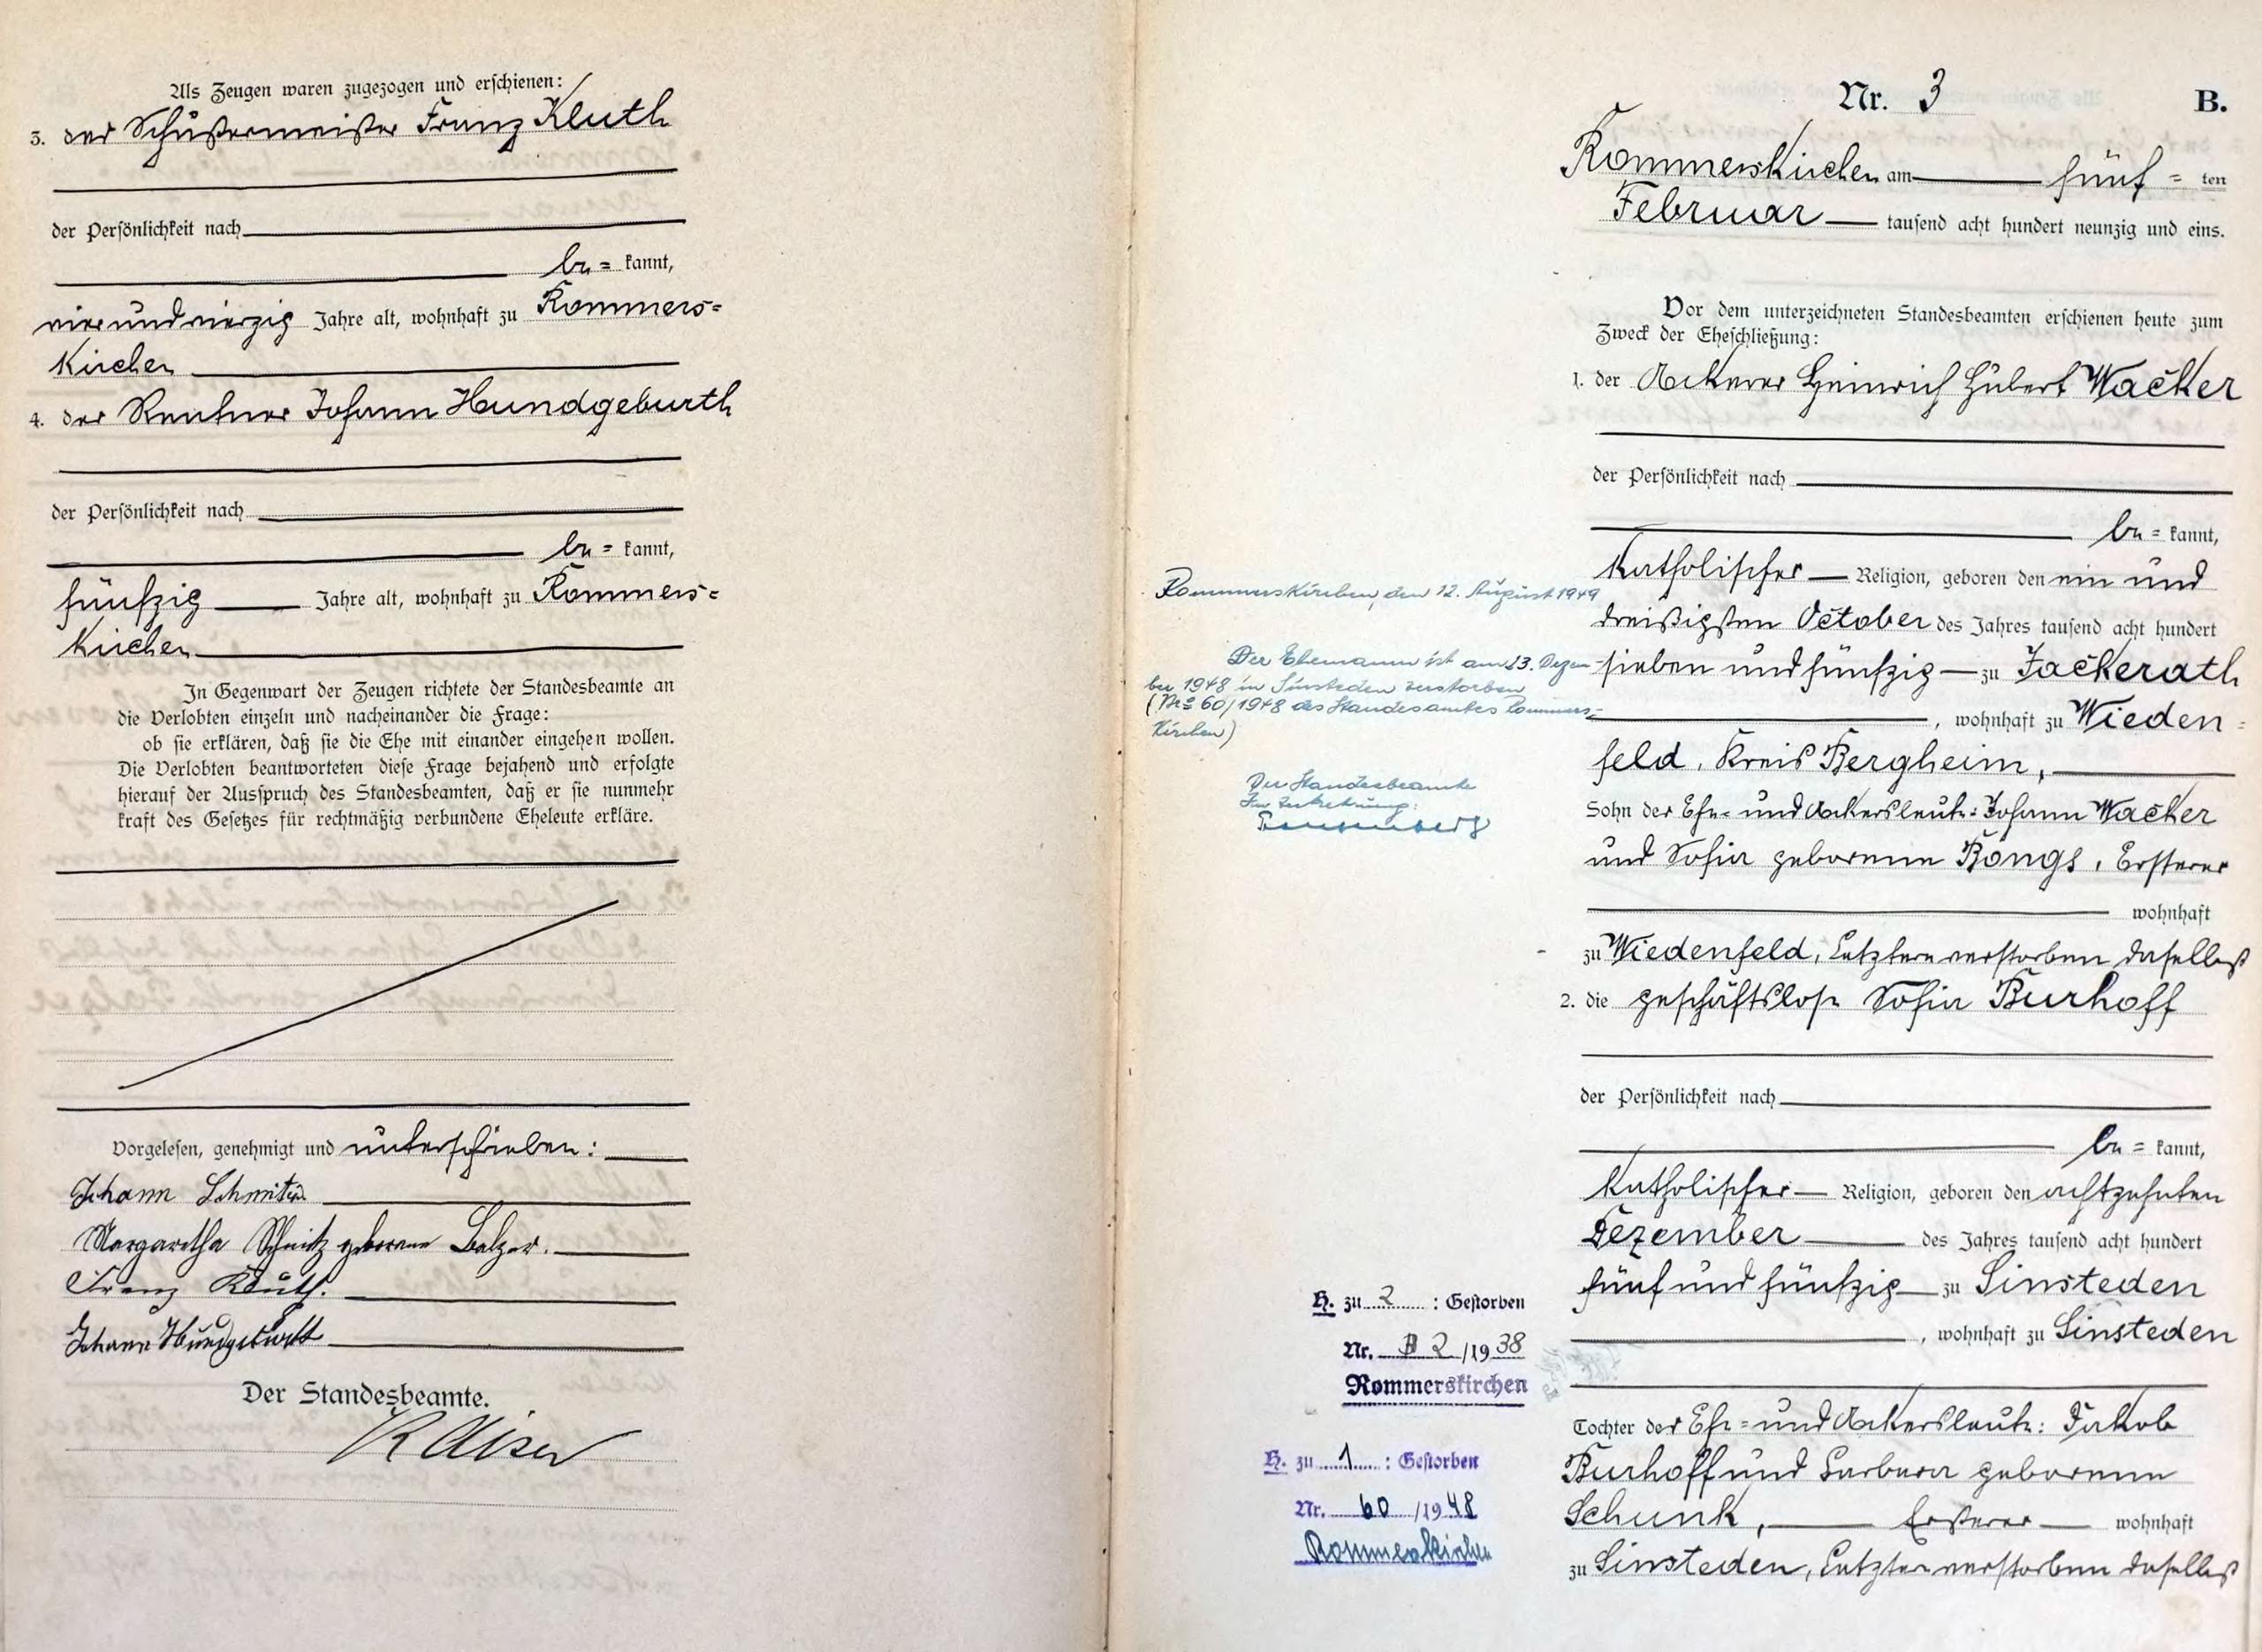 Als Zeugen waren zugezogen und erschienen:
3. der Schustermeister Franz Kluth
der Persönlichkeit nach
be= kannt,
vierundvierzig Jahre alt, wohnhaft zu Rommers=
kirchen
4. der Rentner Johann Hundgeburth
der Persönlichkeit nach
be= kannt,
fünfzig Jahre alt, wohnhaft zu Rommers=
kirchen
In Gegenwart der Zeugen richtete der Standesbeamte an
die Verlobten einzeln und nacheinander die Frage:
ob sie erklären, daß sie die Ehe mit einander eingehen wollen.
Die Verlobten beantworteten diese Frage bejahend und erfolgte
hierauf der Ausspruch des Standesbeamten, daß er sie nunmehr
kraft des Gesetzes für rechtmäßig verbundene Eheleute erkläre.
Vorgelesen, genehmigt und unterschrieben:
Johann Schmitz
Margaretha Schmitz geborene Balzer.
Franz Kluth.
Johann Hundgeburth
Der Standesbeamte.
Kaiser
Nr. 3 B.
Rommerskirchen am fünf= ten
Februar tausend acht hundert neunzig und eins.
Vor dem unterzeichneten Standesbeamten erschienen heute zum
Zweck der Eheschließung:
1. der Ackerer Heinrich Hubert Wacker
der Persönlichkeit nach
be= kannt,
katholischer Religion, geboren den ein und
dreißigsten October des Jahres tausend acht hundert
sieben und fünfzig zu Jackerath
, wohnhaft zu Wieden=
feld, Kreis Bergheim,
Sohn der Ehe- und Ackersleute: Johann Wacker
und Sofia geborene Rongs, Ersterer
wohnhaft
zu Wiedenfeld, Letztere verstorben daselbst
2. die geschäftslose Sofia Burhoff
der Persönlichkeit nach
be= kannt,
katholischer Religion, geboren den achtzehnten
Dezember des Jahres tausend acht hundert
fünf und fünfzig zu Sinsteden
, wohnhaft zu Sinsteden
Tochter der Ehe= und Ackersleute: Jakob
Burhoff und Barbara geborene
Schunk, Ersterer wohnhaft
zu Sinsteden, Letztere verstorben daselbst
Rommerskirchen, den 12. August 1949
Der Ehemann ist am 13. Dezem-
ber 1948 in Sinsteden verstorben
(No 60/1948 des Standesamtes Rommers-
kirchen)
Der Standesbeamte
In Vertretung:
H. zu 2 : Gestorben
Nr. 2 /1938
Rommerskirchen
H. zu 1 : Gestorben
Nr. 60 /1948
Rommerskirchen